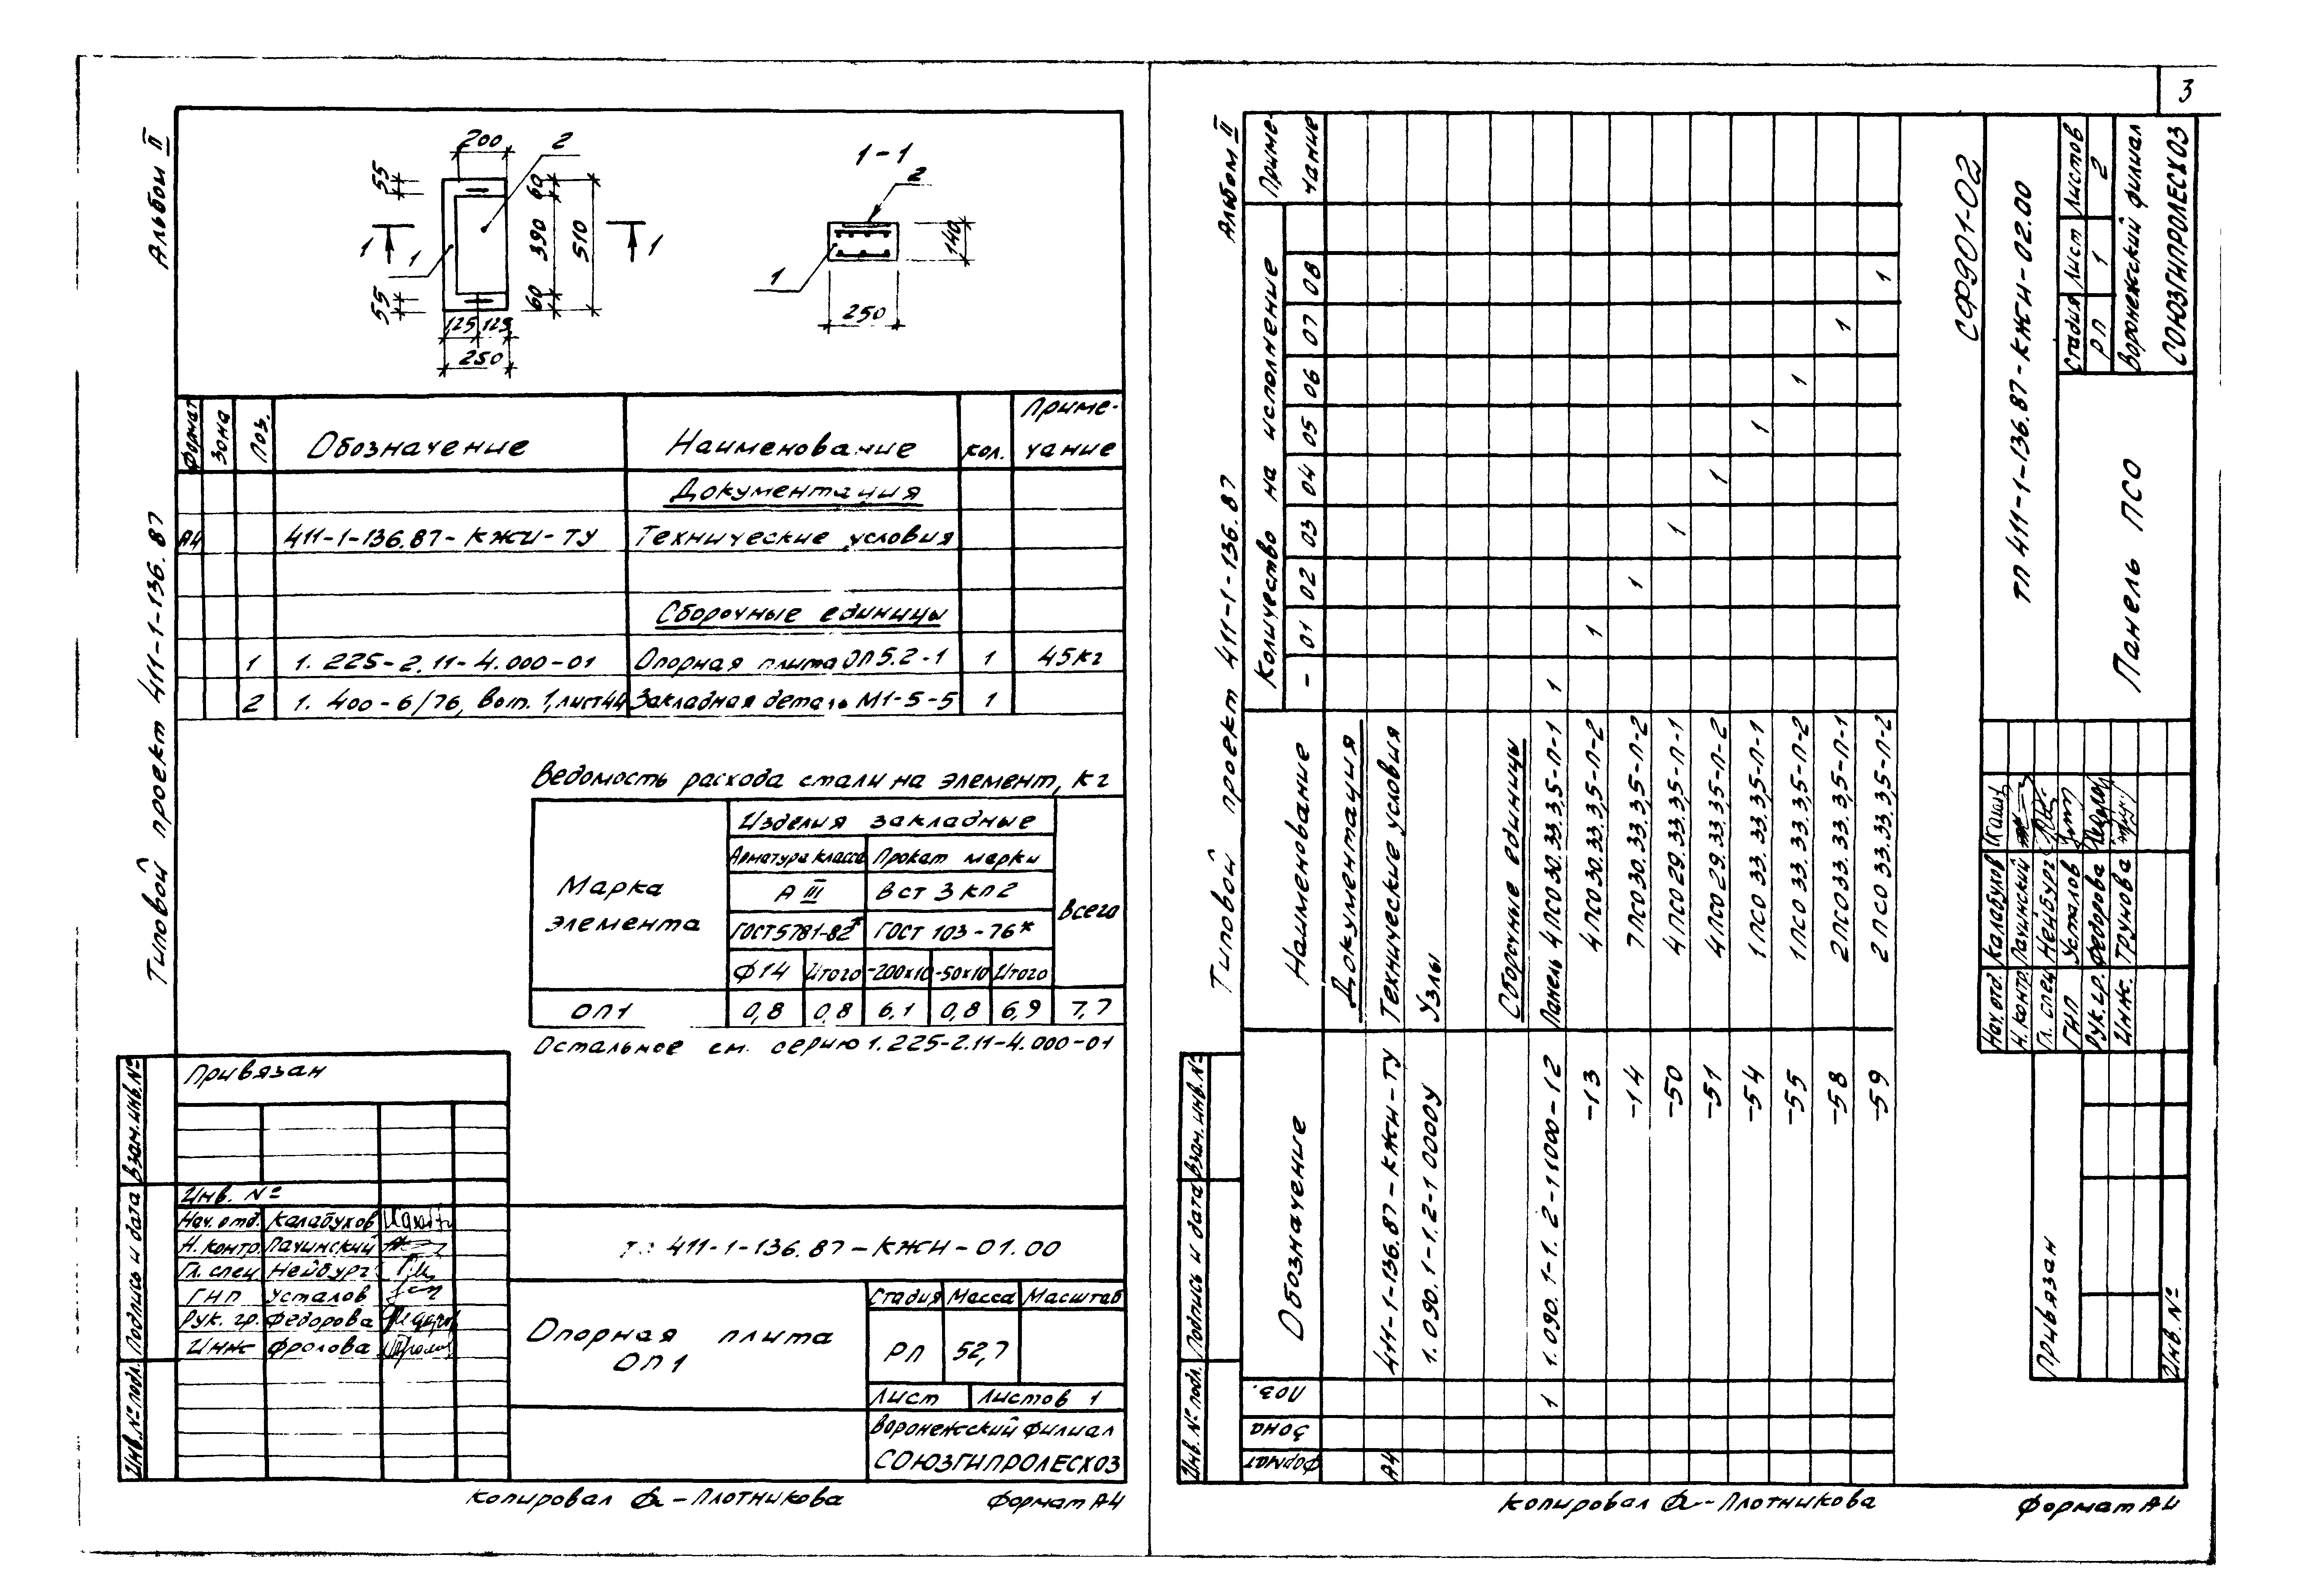 3
Альбом II
Типовой проект 411-1-136.87
200
2
55
60
390
510
60
55
1
1
1
125
125
250
1-1
2
1
140
250
Формат
Зона
Поз.
Обозначение
Наименование
Кол.
Приме-
чание
Документация
А4
411-1-136.87-КЖИ-ТУ
Технические условия
Сборочные единицы
1
1.225-2.11-4.000-01
Опорная плита ОП5.2-1
1
45кг
2
1.400-6/76, Вып. 1, лист 44
Закладная деталь М1-5-5
1
Ведомость расхода стали на элемент, кг
Марка
элемента
Изделия закладные
Арматура класса
Прокат марки
Всего
А III
В ст 3 кп 2
ГОСТ 5781-82*
ГОСТ 103-76*
Ф14
Итого
-200х10
-50х10
Итого
ОП1
0,8
0,8
6,1
0,8
6,9
7,7
Остальное см. серию 1.225-2.11-4.000-01
Привязан
Инв. №
Нач. отд. Калабухов
Н. контр. Лачинский
Гл. спец Нейбург
ГИП Усталов
Рук. гр. Федорова
Инж Фролова
тп 411-1-136.87-КЖИ-01.00
Опорная плита
ОП1
Стадия
Масса
Масштаб
РП
52,7
Лист
Листов 1
Воронежский филиал
СОЮЗГИПРОЛЕСХОЗ
Взам.инв.№
Подпись и дата
Инв.№ подл.
Копировал - Плотникова
Формат А4
Альбом II
Типовой проект 411-1-136.87
Формат
Зона
Поз.
Обозначение
Наименование
Количество на исполнение
Приме-
чание
- 01 02 03 04 05 06 07 08
Документация
А4
411-1-136.87-КЖИ-ТУ
Технические условия
1.090.1-1.2-1 0000У
Узлы
Сборочные единицы
1
1.090.1-1.2-11000-12
Панель 4ПСО30.33.3,5-П-1
1
-13
4ПСО30.33.3,5-П-2
1
-14
7ПСО30.33.3,5-П-2
1
-50
4ПСО29.33.3,5-П-1
1
-51
4ПСО29.33.3,5-П-2
1
-54
1ПСО33.33.3,5-П-1
1
-55
1ПСО33.33.3,5-П-2
1
-58
2ПСО33.33.3,5-П-1
1
-59
2ПСО33.33.3,5-П-2
1
СФ901-02
ТП 411-1-136.87-КЖИ-02.00
Нач. отд. Калабухов
Н. контр. Лачинский
Гл. спец Нейбург
ГИП Усталов
Рук. гр. Федорова
Инж. Трунова
Панель ПСО
Стадия
Лист
Листов
РП
1
2
Воронежский филиал
СОЮЗГИПРОЛЕСХОЗ
Привязан
Инв. №
Взам.инв.№
Подпись и дата
Инв.№ подл.
Копировал - Плотникова
Формат А4